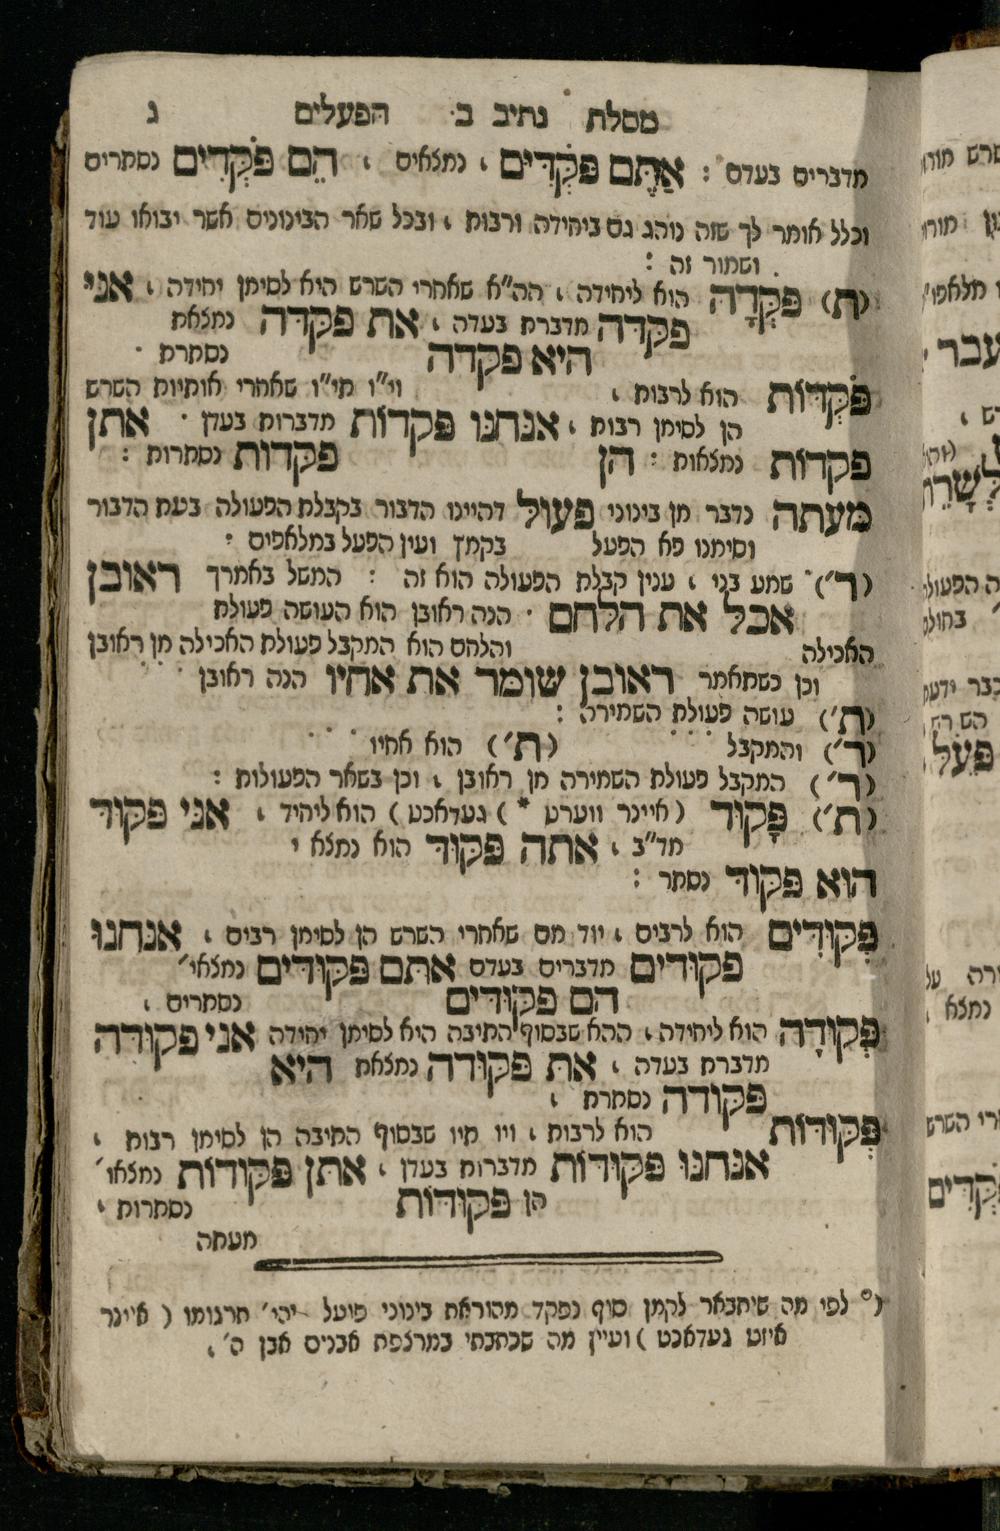 מסלת נתיב ב הפעלים ג
מדברים בעדם : אַתֶּם פֹּקְדִים , נמצאים , הֵם פֹּקְדִים נסתרים
וכלל אומר לך שזה נוהג גם ביחידה ורבות , ובכל שאר הבינונים אשר יבואו עוד
ושמור זה :
(ת) פֹּקְדָה הוא ליחידה , הה״א שאחרי השרש היא לסימן יחידה , אני
פקדה מדברת בעדה , את פקדה נמצאת
היא פקדה נסתרת ·
פֹּקְדוֹת הוא לרבות , וי״ו תי״ו שאחרי אותיות השרש
הן לסימן רבות , אנחנו פקדות מדברות בעדן · אתן
פקדות נמצאות : הן פקדות נסתרות :
מעתה נדבר מן בינוני פעול דהיינו הדבור בקבלת הפעולה בעת הדבור
וסימנו פא הפעל בקמץ ועין הפעל במלאפים :
(ר׳) שמע בני , ענין קבלת הפעולה הוא זה : המשל באמרך ראובן
אכל את הלחם · הנה ראובן הוא העושה פעולת
האכילה והלחם הוא המקבל פעולת האכילה מן ראובן
וכן כשתאמר ראובן שומר את אחיו הנה ראובן
(ת׳) עושה פעולת השמירה :
(ר׳) והמקבל (ת׳) הוא אחיו
(ר׳) המקבל פעולת השמירה מן ראובן , וכן בשאר הפעולות :
(ת׳) פָּקוּד (איינר ווערט *) געדאכט) הוא ליחיד , אני פקוד
מד״ב , אתה פקוד הוא נמצא י
הוא פקוד נסתר :
פְּקוּדִים הוא לרבים , יוד מם שאחרי השרש הן לסימן רבים , אנחנו
פקודים מדברים בעדם אתם פקודים נמצאי׳
הם פקודים נסתרים ,
פְּקוּדָה הוא ליחידה , ההא שבסוף התיבה היא לסימן יחידה אני פקודה
מדברת בעדה , את פקודה נמצאת היא
פקודה נסתרת ,
פְּקוּדוֹת הוא לרבות , ויו תיו שבסוף התיבה הן לסימן רבות ,
אנחנו פקודות מדברות בעדן , אתן פקודות נמצאו׳
הן פקודות נסתרות ,
מעתה
(° לפי מה שיתבאר לקמן סוף נפקד מהוראת בינוני פועל יהי׳ תרגומו ( איינר
איזט געדאכט ) ועיין מה שכתבתי במרצפת אבנים אבן ה׳ ,